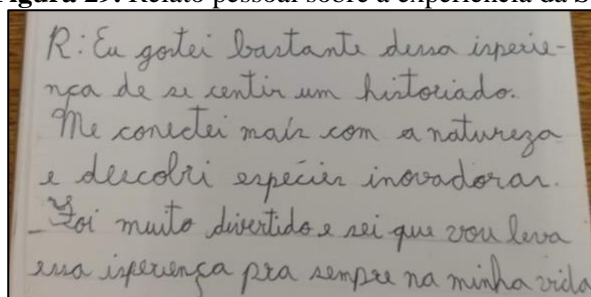 Figura 29. Relato pessoal sobre a experiência da S
R: Eu gostei bastante dessa isperie-
nça de se centir um historiado.
Me conectei mais com a natureza
e descobri espécies inovadoras.
Foi muito divertido e sei que vou leva
essa isperiença pra sempre na minha vida